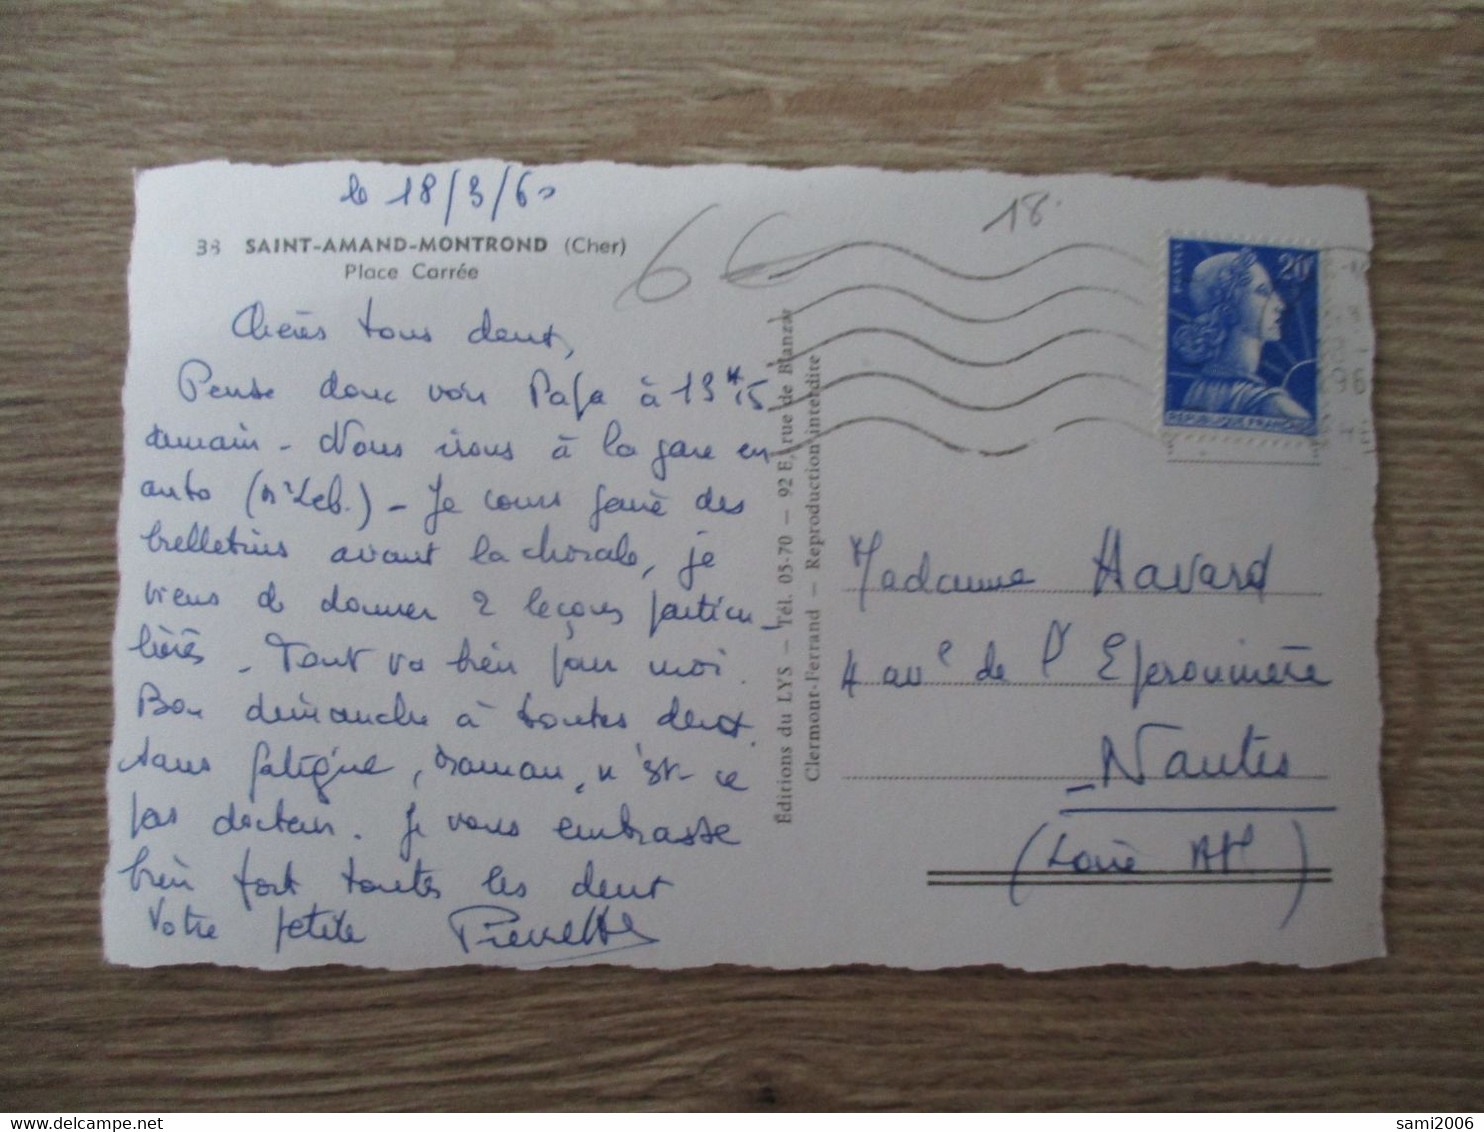 le 18/3/60
38 SAINT-AMAND-MONTROND (Cher)
Place Carrée
66
18.
Chères tous deux,
Pense donc voir Papa à 19h15
demain - Nous irons à la gare en
auto (Mr Leb.) - Je cours faire des
bulletins avant la chorale, je
viens de donner 2 leçons particu-
lières - Tout va bien pour moi.
Bon dimanche à toutes deux.
sans fatigue, maman, n'est ce
pas docteur. Je vous embrasse
bien fort toutes les deux
Votre petite Pierrette
Éditions du LYS - Tél. 05-70 - 92 E, rue de Blanzat
Clermont-Ferrand - Reproduction interdite
20F
REPUBLIQUE FRANÇAISE
Madame Havard
4 ave de l'Eperonnière
Nantes
(Loire Atl)
sami2006
delcampe.net